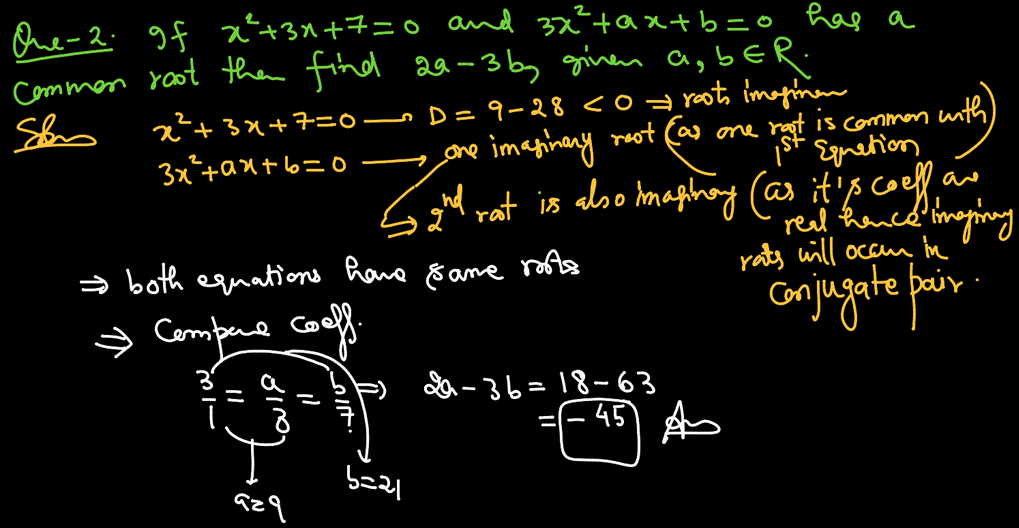 Que-2. If x²+3x+7=0 and 3x²+ax+b=0 has a
common root then find 2a-3b, given a, b ∈ R.
Soln x²+3x+7=0 — D = 9-28 < 0 ⇒ roots imaginary
3x²+ax+b=0 → one imaginary root (as one root is common with 1st Equation)
⇒ 2nd root is also imaginary (as it's coeff are
real hence imaginary
roots will occur in
conjugate pair.
⇒ both equations have same roots
⇒ Compare coeff.
3/1 = a/3 = b/7 ⇒ 2a-3b = 18-63
= -45 Ans
b=21
a=9